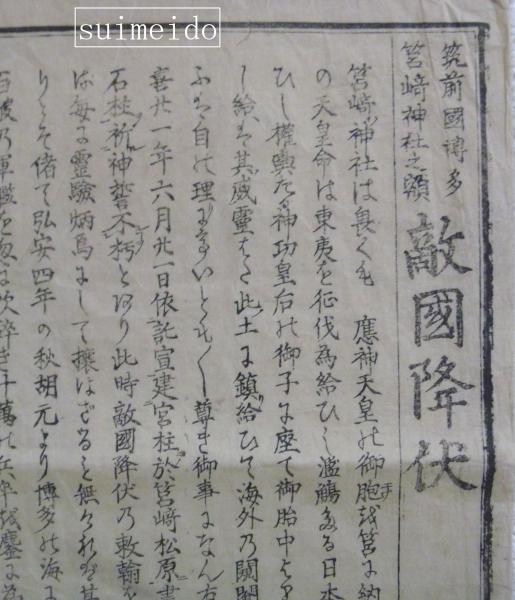 suimeido
筑前國博多
筥﨑神社之額
敵國降伏
筥﨑神社は畏くも 應神天皇の御胞を筥に納
の天皇命は東夷を征伐為給ひし濫觴なる日本
ひし權輿たる神功皇后の御子に座て御胎中より
し給へば其威靈もまた此土に鎮給ひて海外乃闘
ふは自の理にないとも尊き御事になん右
喜廿一年六月廿一日依託宣建宮柱於筥﨑松原
石柱祈神誓不朽とあり此時敵國降伏乃敕翰を
は毎に靈驗炳焉にして攘はざると無ければ其
りとぞ偖て弘安四年の秋胡元より博多の海に
乃軍艦を忽に吹碎き十萬の兵卒